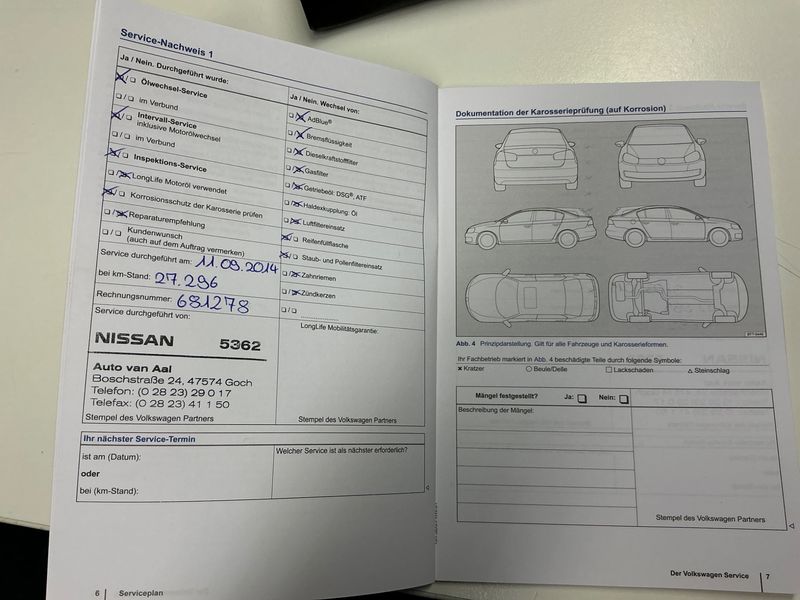 Service-Nachweis 1
Ja / Nein. Durchgeführt wurde:
Ölwechsel-Service
im Verbund
Intervall-Service
inklusive Motorölwechsel
im Verbund
Inspektions-Service
LongLife Motoröl verwendet
Korrosionsschutz der Karosserie prüfen
Reparaturempfehlung
Kundenwunsch
(auch auf dem Auftrag vermerken)
Service durchgeführt am: 11.09.2014
bei km-Stand: 27.296
Rechnungsnummer: 681278
Service durchgeführt von:
NISSAN 5362
Auto van Aal
Boschstraße 24, 47574 Goch
Telefon: (0 28 23) 29 0 17
Telefax: (0 28 23) 41 1 50
Stempel des Volkswagen Partners
Ja / Nein. Wechsel von:
AdBlue®
Bremsflüssigkeit
Dieselkraftstofffilter
Gasfilter
Getriebeöl: DSG®, ATF
Haldexkupplung: Öl
Luftfiltereinsatz
Reifenfüllflasche
Staub- und Pollenfiltereinsatz
Zahnriemen
Zündkerzen
LongLife Mobilitätsgarantie:
Stempel des Volkswagen Partners
Ihr nächster Service-Termin
ist am (Datum):
oder
bei (km-Stand):
Welcher Service ist als nächster erforderlich?
6 | Serviceplan
Dokumentation der Karosserieprüfung (auf Korrosion)
Abb. 4 Prinzipdarstellung. Gilt für alle Fahrzeuge und Karosserieformen.
Ihr Fachbetrieb markiert in Abb. 4 beschädigte Teile durch folgende Symbole:
× Kratzer ○ Beule/Delle □ Lackschaden △ Steinschlag
Mängel festgestellt? Ja: Nein:
Beschreibung der Mängel:
Stempel des Volkswagen Partners
Der Volkswagen Service | 7